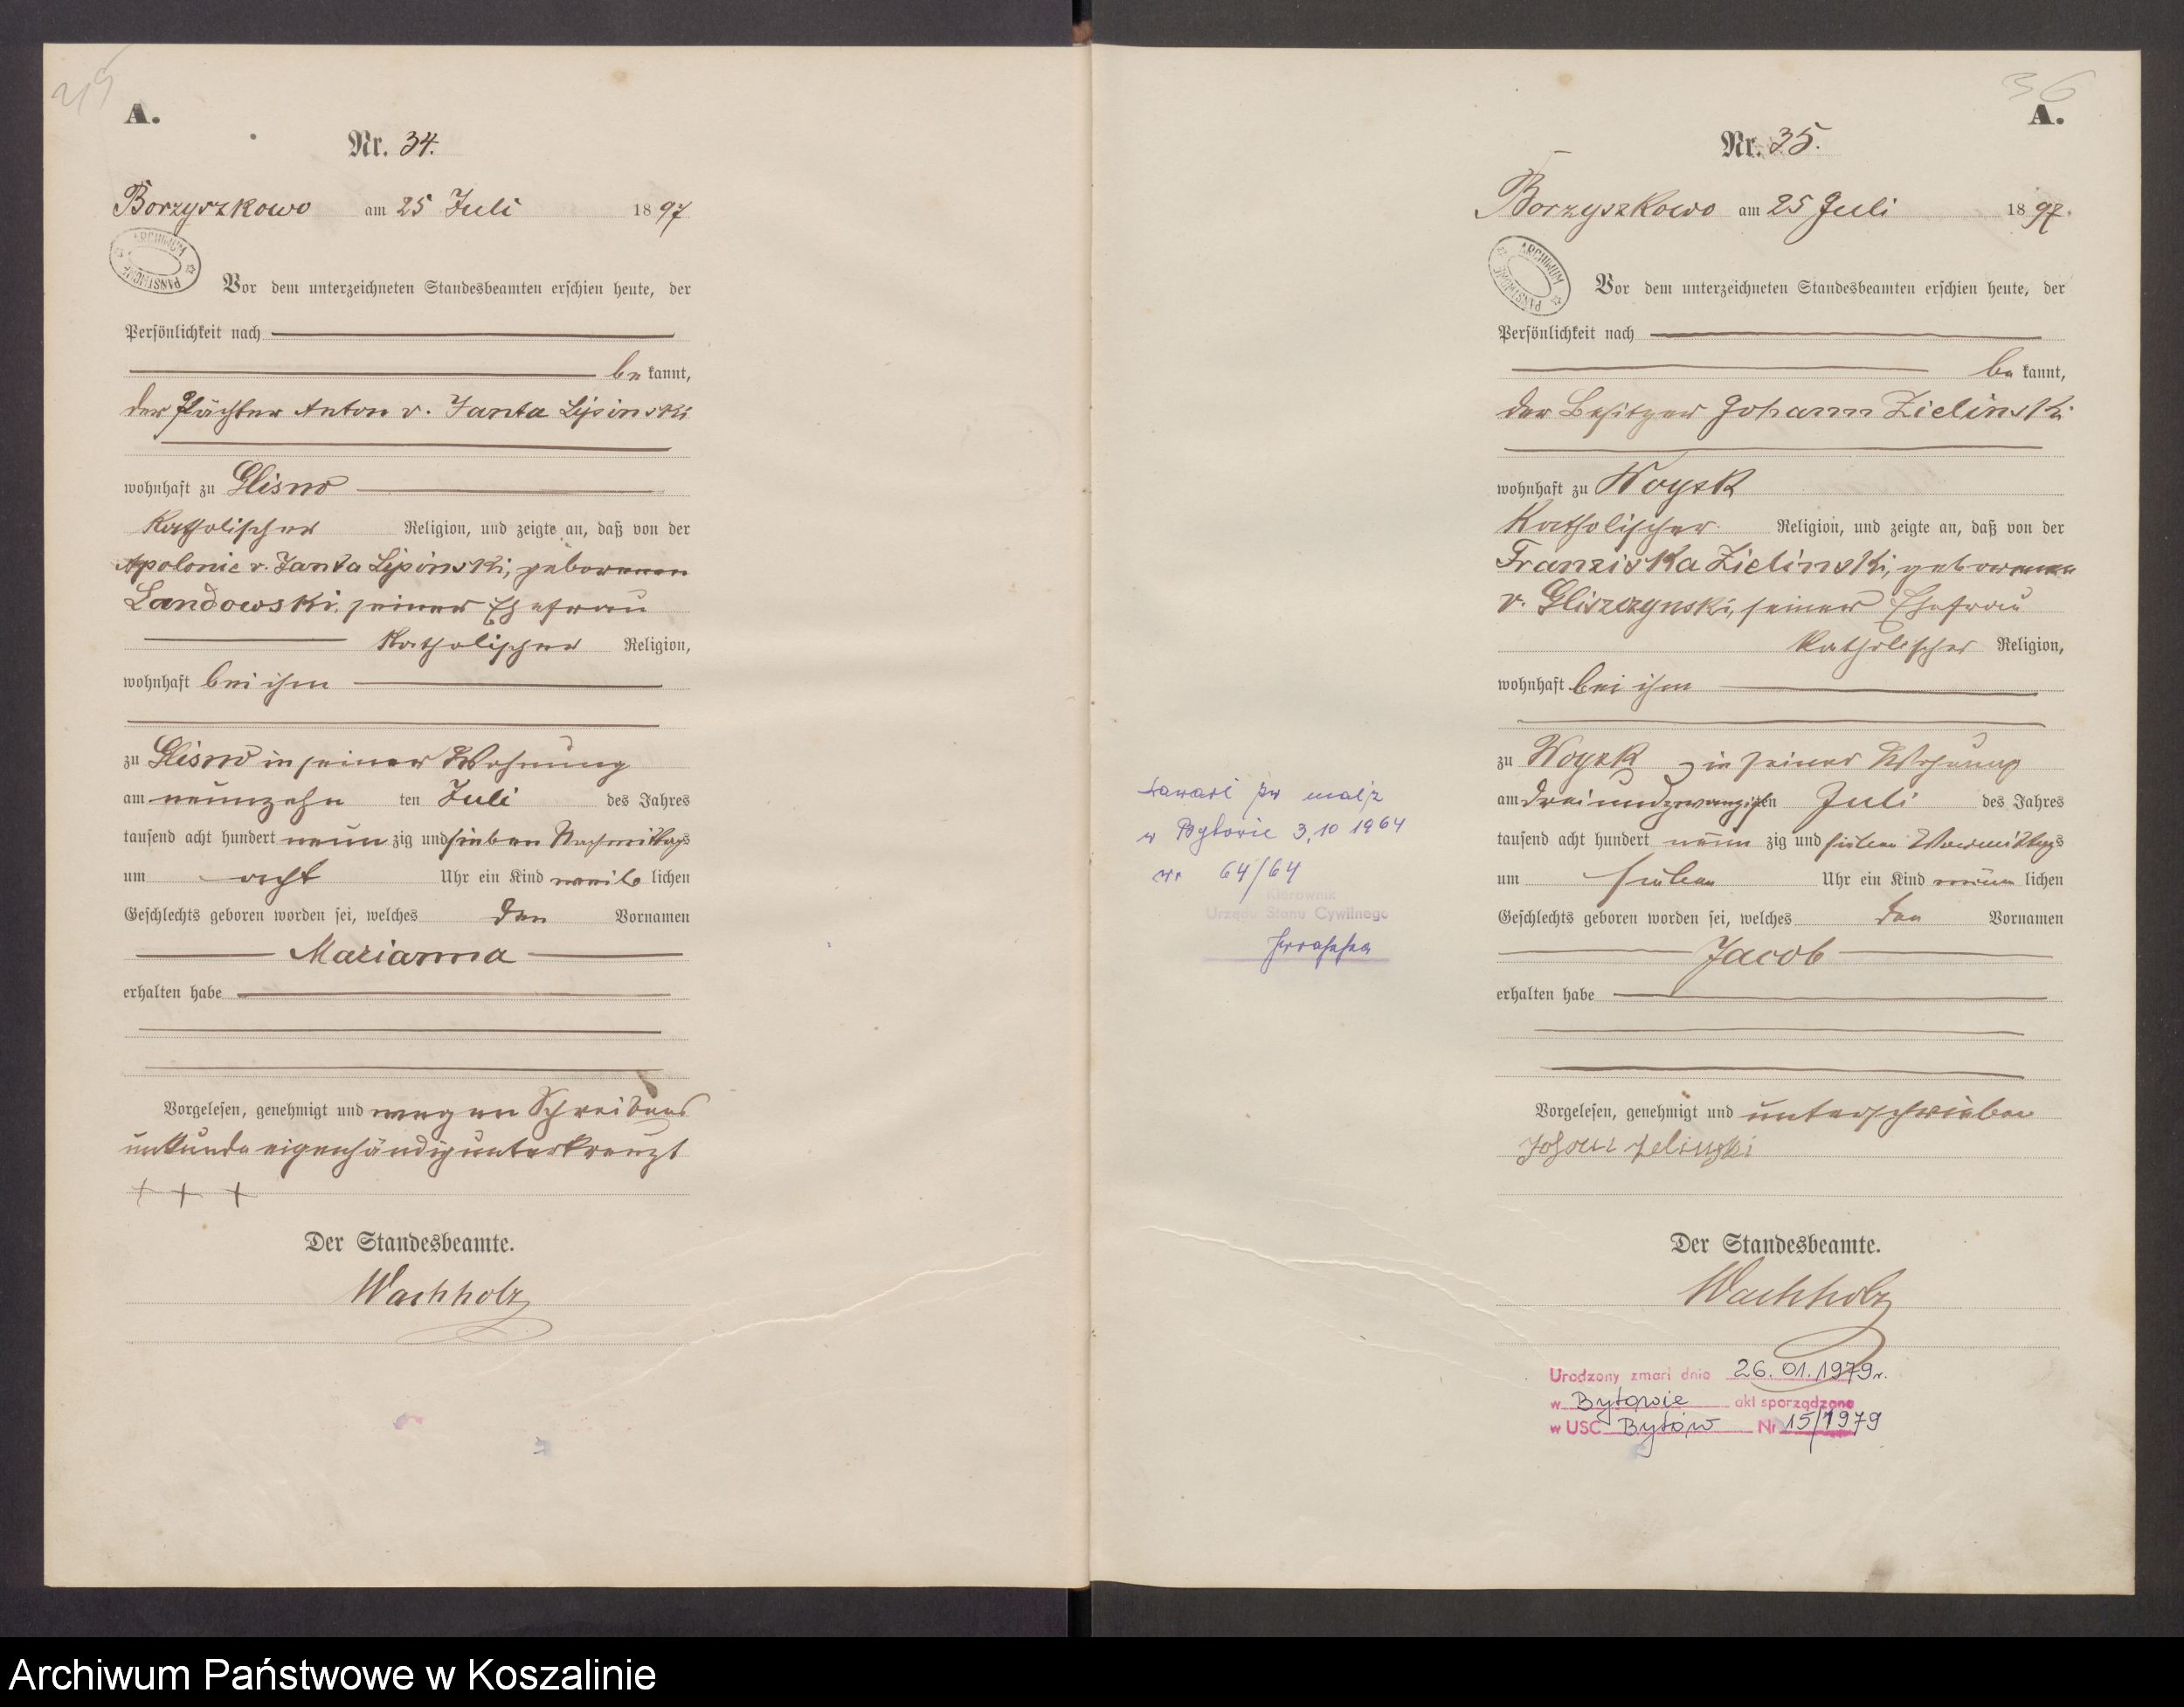 A.
Nr. 34.
Borzyszkowo am 25 Juli 1897
ARCHIWUM PAŃSTWOWE
Vor dem unterzeichneten Standesbeamten erschien heute, der
Persönlichkeit nach
be kannt,
der Pächter Anton v. Janta Lipinski
wohnhaft zu Glisno
katholischer Religion, und zeigte an, daß von der
Apolonie v. Janta Lipinski, geborenen
Landowski, seiner Ehefrau
katholischer Religion,
wohnhaft bei ihm
zu Glisno in seiner Wohnung
am neunzehn ten Juli des Jahres
tausend acht hundert neun zig und sieben Nachmittags
um acht Uhr ein Kind weib lichen
Geschlechts geboren worden sei, welches den Vornamen
Marianna
erhalten habe
Vorgelesen, genehmigt und wegen Schreibens
unkunde eigenhändig unterkreuzt
+ + +
Der Standesbeamte.
Wachholz
36
A.
Nr. 35.
Borzyszkowo am 25 Juli 1897.
ARCHIWUM PAŃSTWOWE
Vor dem unterzeichneten Standesbeamten erschien heute, der
Persönlichkeit nach
be kannt,
der Besitzer Johann Zielinski
wohnhaft zu Woysk
katholischer Religion, und zeigte an, daß von der
Franziska Zielinski, geborenen
v. Gliszczynski, seiner Ehefrau
katholischer Religion,
wohnhaft bei ihm
zu Woysk in seiner Wohnung
am dreiundzwanzigsten Juli des Jahres
tausend acht hundert neun zig und sieben Vormittags
um sieben Uhr ein Kind männ lichen
Geschlechts geboren worden sei, welches den Vornamen
Jacob
erhalten habe
Vorgelesen, genehmigt und unterschrieben
Johann Zelinski
Der Standesbeamte.
Wachholz
zawarł zw małż
w Bytowie 3.10 1964
nr 64/64
Kierownik
Urzędu Stanu Cywilnego
Urodzony zmarł dnia 26.01.1979r.
w Bytowie akt sporządzono
w USC Bytów Nr 15/1979
Archiwum Państwowe w Koszalinie